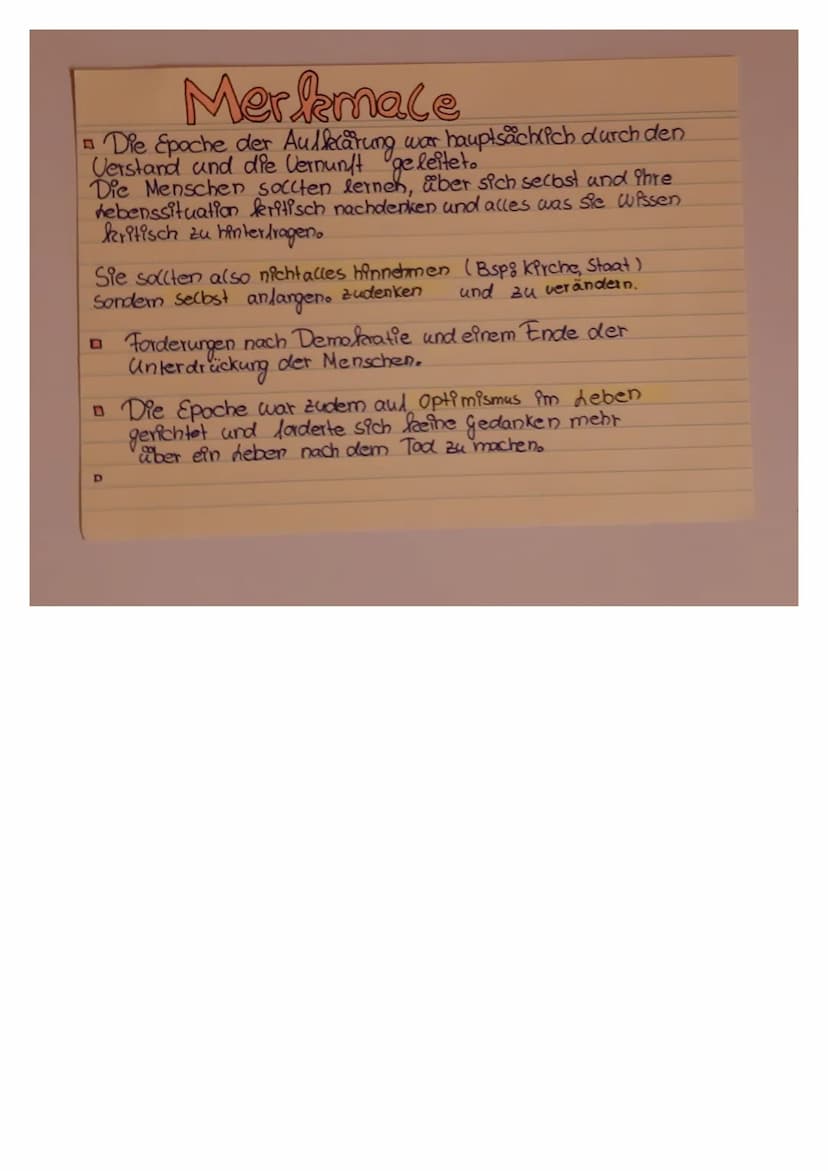 Merkmale
Die Epoche der Aufklärung war hauptsächlich durch den
Verstand und die Vernunft geleitet.
Die Menschen sollten lernen, über sich selbst und ihre
Lebenssituation kritisch nachdenken und alles was sie wissen
kritisch zu hinterfragen.
Sie sollten also nicht alles hinnehmen (Bsp: Kirche, Staat)
sondern selbst anfangen. zudenken und zu verändern.
Forderungen nach Demokratie und einem Ende der
Unterdrückung der Menschen.
Die Epoche war zudem auf Optimismus im Leben
gerichtet und forderte sich keine Gedanken mehr
über ein Leben nach dem Tod zu machen.